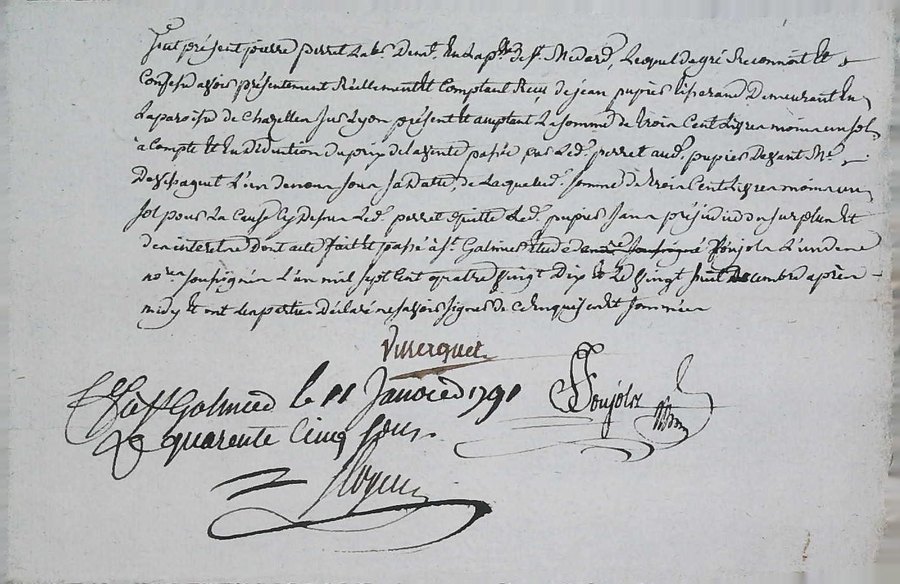 fut présent pierre perret lab.r dem.t en la p.sse de S.t Medard, lequel de gré Reconnoit et
Confesse avoir présentement Réellement et Comptant Reçu de jean pupier tisserand Demeurant En
la paroisse de Chazelles Sus Lyon présent et acceptant la somme de trois Cent Livres moins un sol
à Compte et En Déduction du prix de la vente passée par led. perret aud. pupier Devant M.e
Devillaguet L'un de nous sous sa Datte, de laquelle d. somme de trois Cent Livres moins un
sol pour la Cause Cy Dessus led. perret quitte led. pupier sans préjudice du surplus et
des interets dont acte fait et passé à S.t Galmier Etude Ponjols L'un de nous
no.res soussignés L'an mil sept Cent quatre vingt Dix et le vingt huit décembre après
midy et ont les parties Déclaré ne savoir signer de ce Enquis et sommées
Villerguet
à S.t Galmier le 11 Janvier 1791
R. quarente Cinq sous.
Ponjols